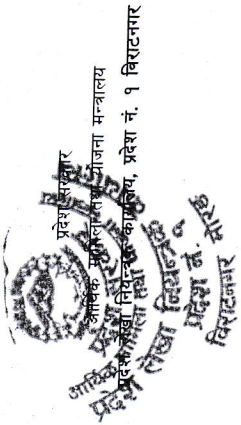 प्रदेश सरकार
आर्थिक मामिला तथा योजना मन्त्रालय
प्रदेश लेखा नियन्त्रक कार्यालय, प्रदेश नं. १ विराटनगर
आर्थिक
प्रदेश लेखा नियन्त्रक
प्रदेश नं.
विराटनगर, मोरङ